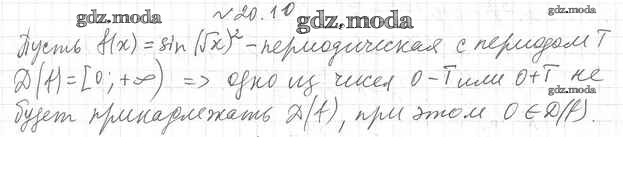 gdz.moda №20.10 gdz.moda gdz.moda
Пусть f(x) = sin (√x)² - периодическая с периодом T
D(f) = [0; +∞) => одно из чисел 0-T или 0+T не
gdz.moda
будет принадлежать D(f), при этом 0 ∈ D(f).